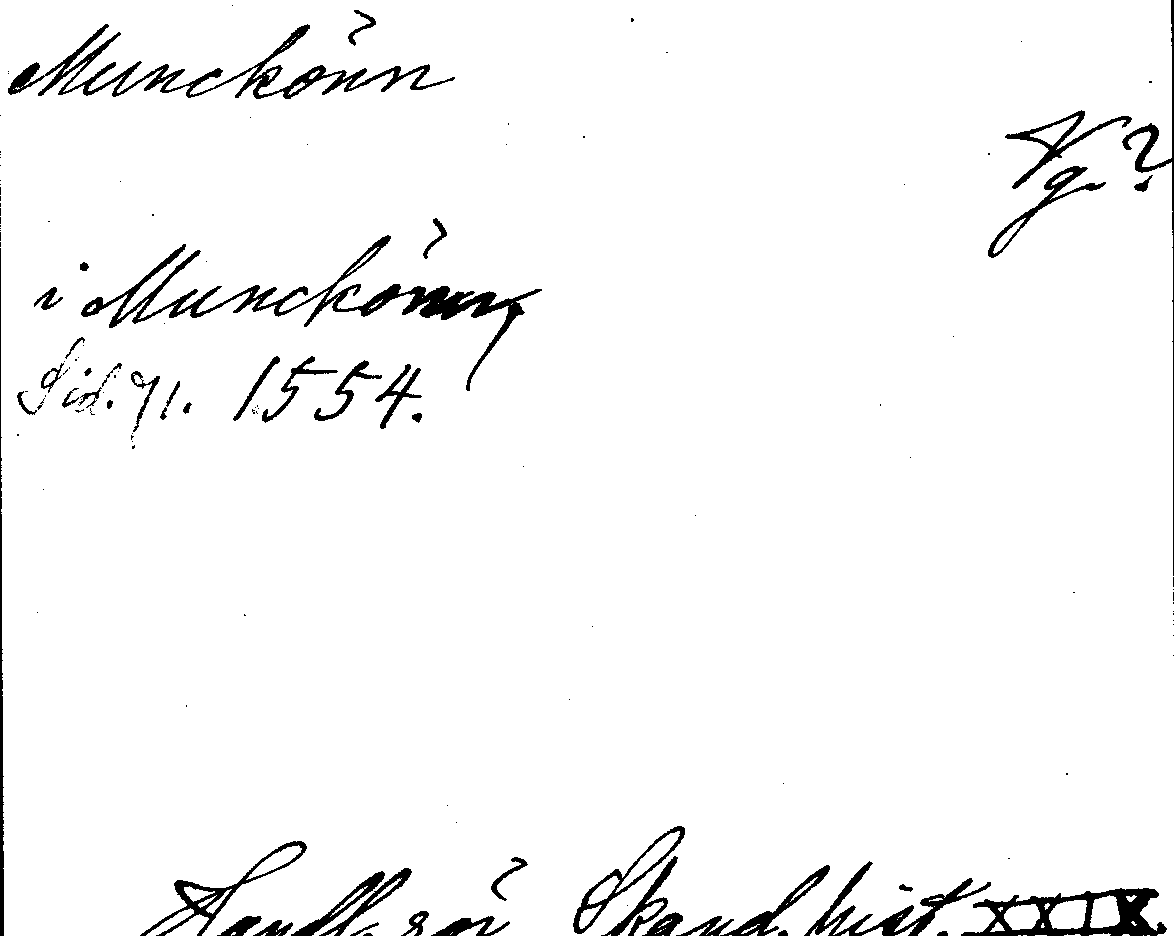 Munckönn
Vg.?
i Munckönn,
Sid. 71. 1554.
Handl. rör Skand. hist. XXIX.